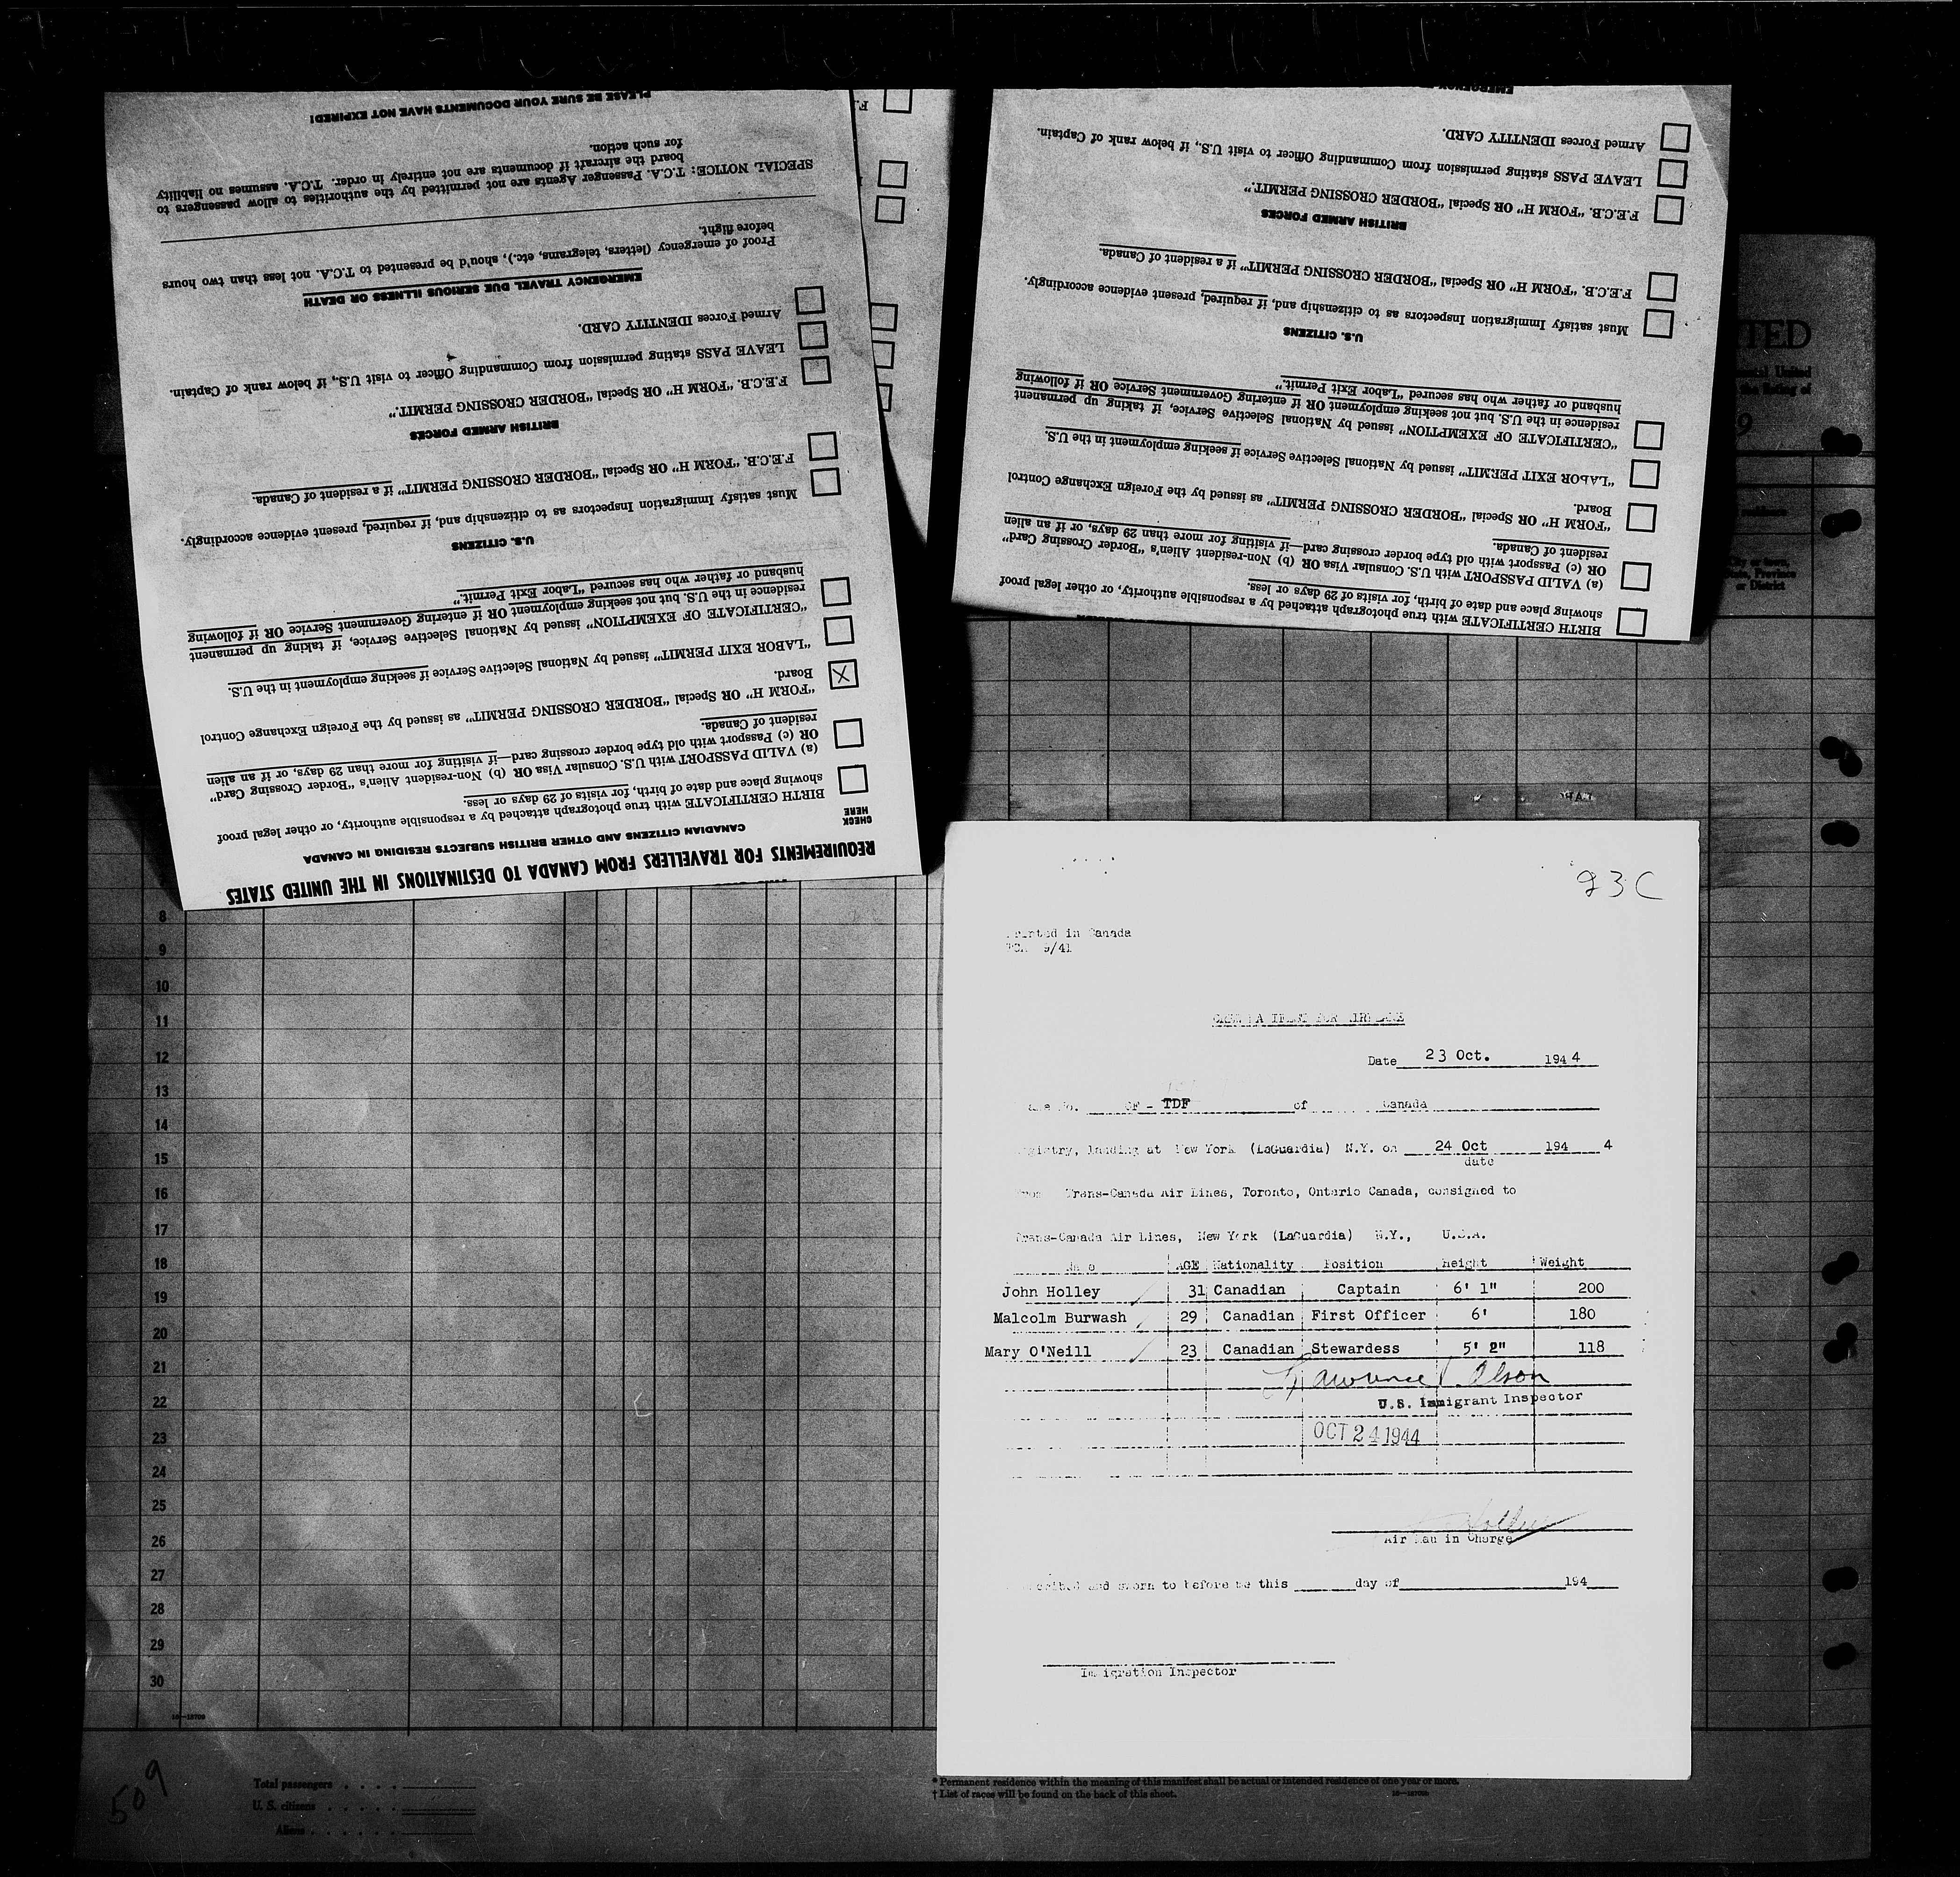 PLEASE BE SURE YOUR DOCUMENTS HAVE NOT EXPIRED!
for such action.
board the aircraft if documents are not entirely in order. T.C.A. assumes no liability
SPECIAL NOTICE: T.C.A. Passenger Agents are not permitted by the authorities to allow passengers to
before flight.
Proof of emergency (letters, telegrams, etc.), shou'd be presented to T.C.A. not less than two hours
EMERGENCY TRAVEL DUE SERIOUS ILLNESS OR DEATH
Armed Forces IDENTITY CARD.
LEAVE PASS stating permission from Commanding Officer to visit U.S., if below rank of Captain.
F.E.C.B. "FORM H" OR Special "BORDER CROSSING PERMIT."
BRITISH ARMED FORCES
F.E.C.B. "FORM H" OR Special "BORDER CROSSING PERMIT" if a resident of Canada.
Must satisfy Immigration Inspectors as to citizenship and, if required, present evidence accordingly.
U.S. CITIZENS
husband or father who has secured "Labor Exit Permit."
residence in the U.S. but not seeking employment OR if entering Government Service OR if following
"CERTIFICATE OF EXEMPTION" issued by National Selective Service, if taking up permanent
"LABOR EXIT PERMIT" issued by National Selective Service if seeking employment in the U.S.
Board.
"FORM H" OR Special "BORDER CROSSING PERMIT" as issued by the Foreign Exchange Control
resident of Canada.
OR (c) Passport with old type border crossing card—if visiting for more than 29 days, or if an alien
(a) VALID PASSPORT with U.S. Consular Visa OR (b) Non-resident Alien's "Border Crossing Card"
showing place and date of birth, for visits of 29 days or less.
BIRTH CERTIFICATE with true photograph attached by a responsible authority, or other legal proof
CHECK HERE
CANADIAN CITIZENS AND OTHER BRITISH SUBJECTS RESIDING IN CANADA
REQUIREMENTS FOR TRAVELLERS FROM CANADA TO DESTINATIONS IN THE UNITED STATES
EMERGENCY
Armed Forces IDENTITY CARD.
LEAVE PASS stating permission from Commanding Officer to visit U.S., if below rank of Captain.
F.E.C.B. "FORM H" OR Special "BORDER CROSSING PERMIT."
BRITISH ARMED FORCES
F.E.C.B. "FORM H" OR Special "BORDER CROSSING PERMIT" if a resident of Canada.
Must satisfy Immigration Inspectors as to citizenship and, if required, present evidence accordingly.
U.S. CITIZENS
husband or father who has secured "Labor Exit Permit."
residence in the U.S. but not seeking employment OR if entering Government Service OR if following
"CERTIFICATE OF EXEMPTION" issued by National Selective Service, if taking up permanent
"LABOR EXIT PERMIT" issued by National Selective Service if seeking employment in the U.S.
Board.
"FORM H" OR Special "BORDER CROSSING PERMIT" as issued by the Foreign Exchange Control
resident of Canada.
OR (c) Passport with old type border crossing card—if visiting for more than 29 days, or if an alien
(a) VALID PASSPORT with U.S. Consular Visa OR (b) Non-resident Alien's "Border Crossing Card"
showing place and date of birth, for visits of 29 days or less.
BIRTH CERTIFICATE with true photograph attached by a responsible authority, or other legal proof
TED
United
the listing of
9
or District
8
9
10
11
12
13
14
15
16
17
18
19
20
21
22
23
24
25
26
27
28
29
30
16—18709
509
Total passengers
U. S. citizens
Aliens
* Permanent residence within the meaning of this manifest shall be actual or intended residence of one year or more.
† List of races will be found on the back of this sheet.
93C
Printed in Canada
TCA 9/41
Date 23 Oct. 1944
CF - TDF of Canada
registry, landing at New York (LaGuardia) N.Y. on 24 Oct 194 4
date
From Trans-Canada Air Lines, Toronto, Ontario Canada, consigned to
Trans-Canada Air Lines, New York (LaGuardia) N.Y., U.S.A.
Name AGE Nationality Position Height Weight
John Holley 31 Canadian Captain 6' 1" 200
Malcolm Burwash 29 Canadian First Officer 6' 180
Mary O'Neill 23 Canadian Stewardess 5' 2" 118
Lawrence Olson
U.S. Immigrant Inspector
OCT 24 1944
Holley
Air Man in Charge
and sworn to before me this day of 194
Immigration Inspector